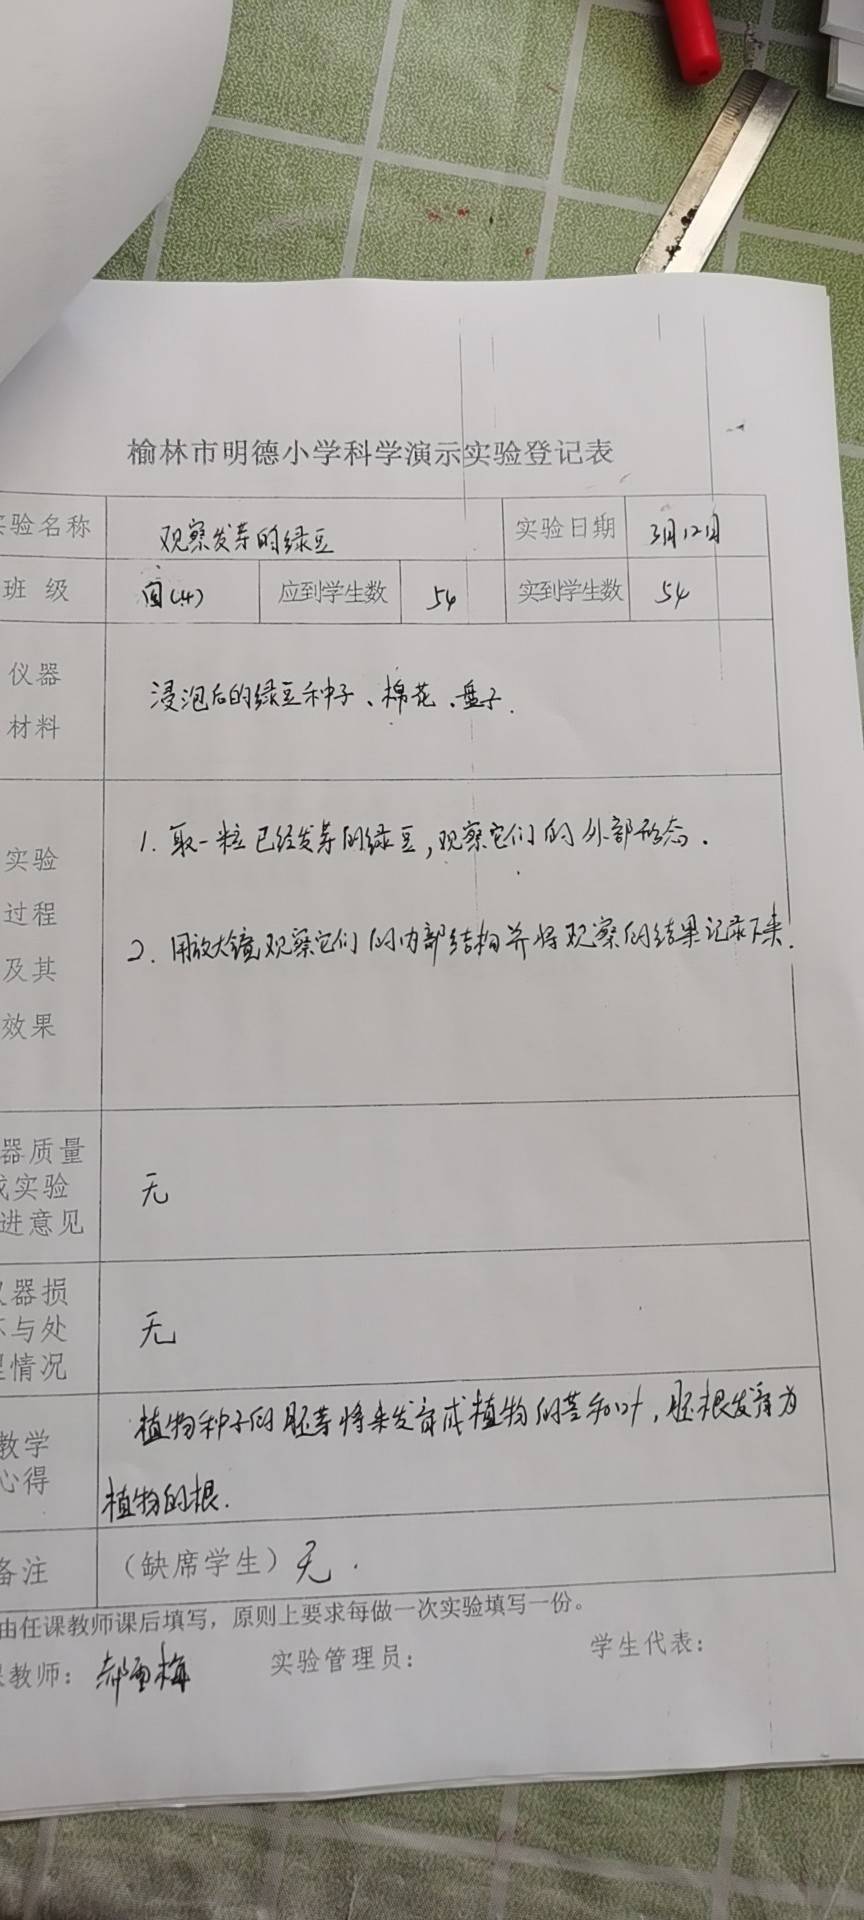 榆林市明德小学科学演示实验登记表
验名称 观察发芽的绿豆 实验日期 3月12日
班 级 四(4) 应到学生数 54 实到学生数 54
仪器
材料
浸泡后的绿豆种子、棉花、盘子.
实验
过程
及其
效果
1. 取一粒已经发芽的绿豆,观察它们的外部形态.
2. 用放大镜观察它们的内部结构并将观察的结果记录下来.
器质量
实验
进意见
无
器损
与处
情况
无
教学
心得
植物种子的胚芽将来发育成植物的茎和叶,胚根发育为
植物的根.
备注 (缺席学生)无.
由任课教师课后填写，原则上要求每做一次实验填写一份。
教师: 梅 实验管理员: 学生代表: